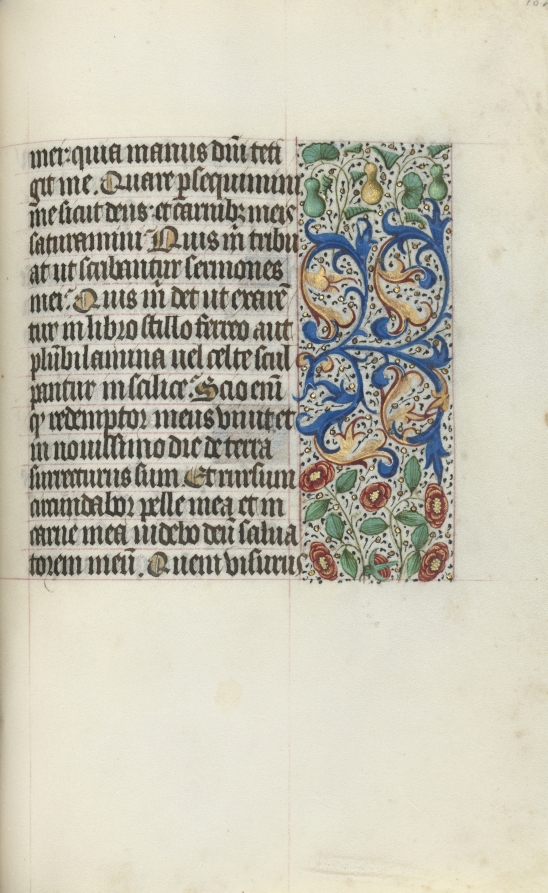 mei: quia manus dñi teti
git me. Quare ꝑsequimini
me sicut deus: et carnibꝫ meis
saturamini Quis m̃ tribu
at ut scribantur sermones
mei. Quis m̃ det ut exarẽ
tur in libro stillo ferreo aut
plũbi lamina uel celte scul
pantur in scilice. Scio enĩ
ꝙ redemptor meus viuit et
in nouissimo die de terra
surrecturus sum Et rursum
circundabor pelle mea et in
carne mea uidebo deũ salua
torem meũ. Quem visurus